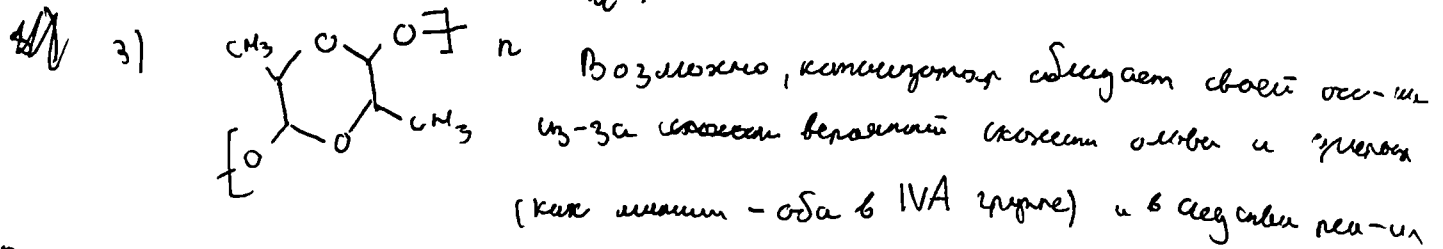 3)
CH3 O O n
O O CH3
Возможно, катализатор обладает своей
из-за вероятной схожести олова и
(как минимум - оба в IVA группе) и в следствии